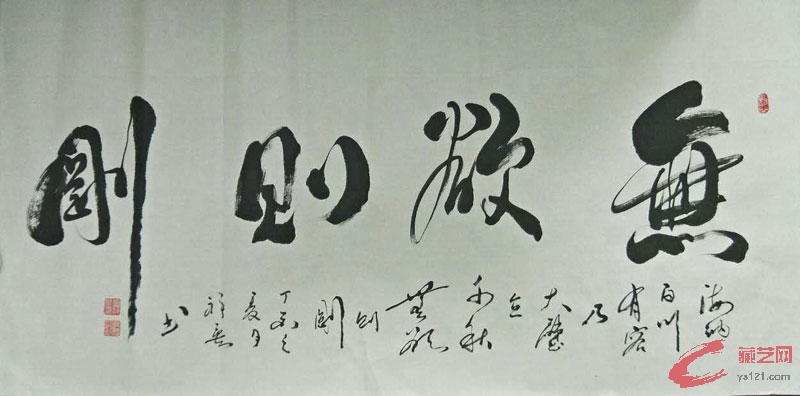 無欲則剛
海纳
百川
有容
乃
大壁
立
千秋
無欲
则
剛
丁酉之
夏月
祥
书
藏艺网
ys121.com